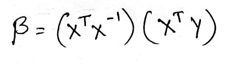 β = (xᵀx⁻¹)(xᵀy)